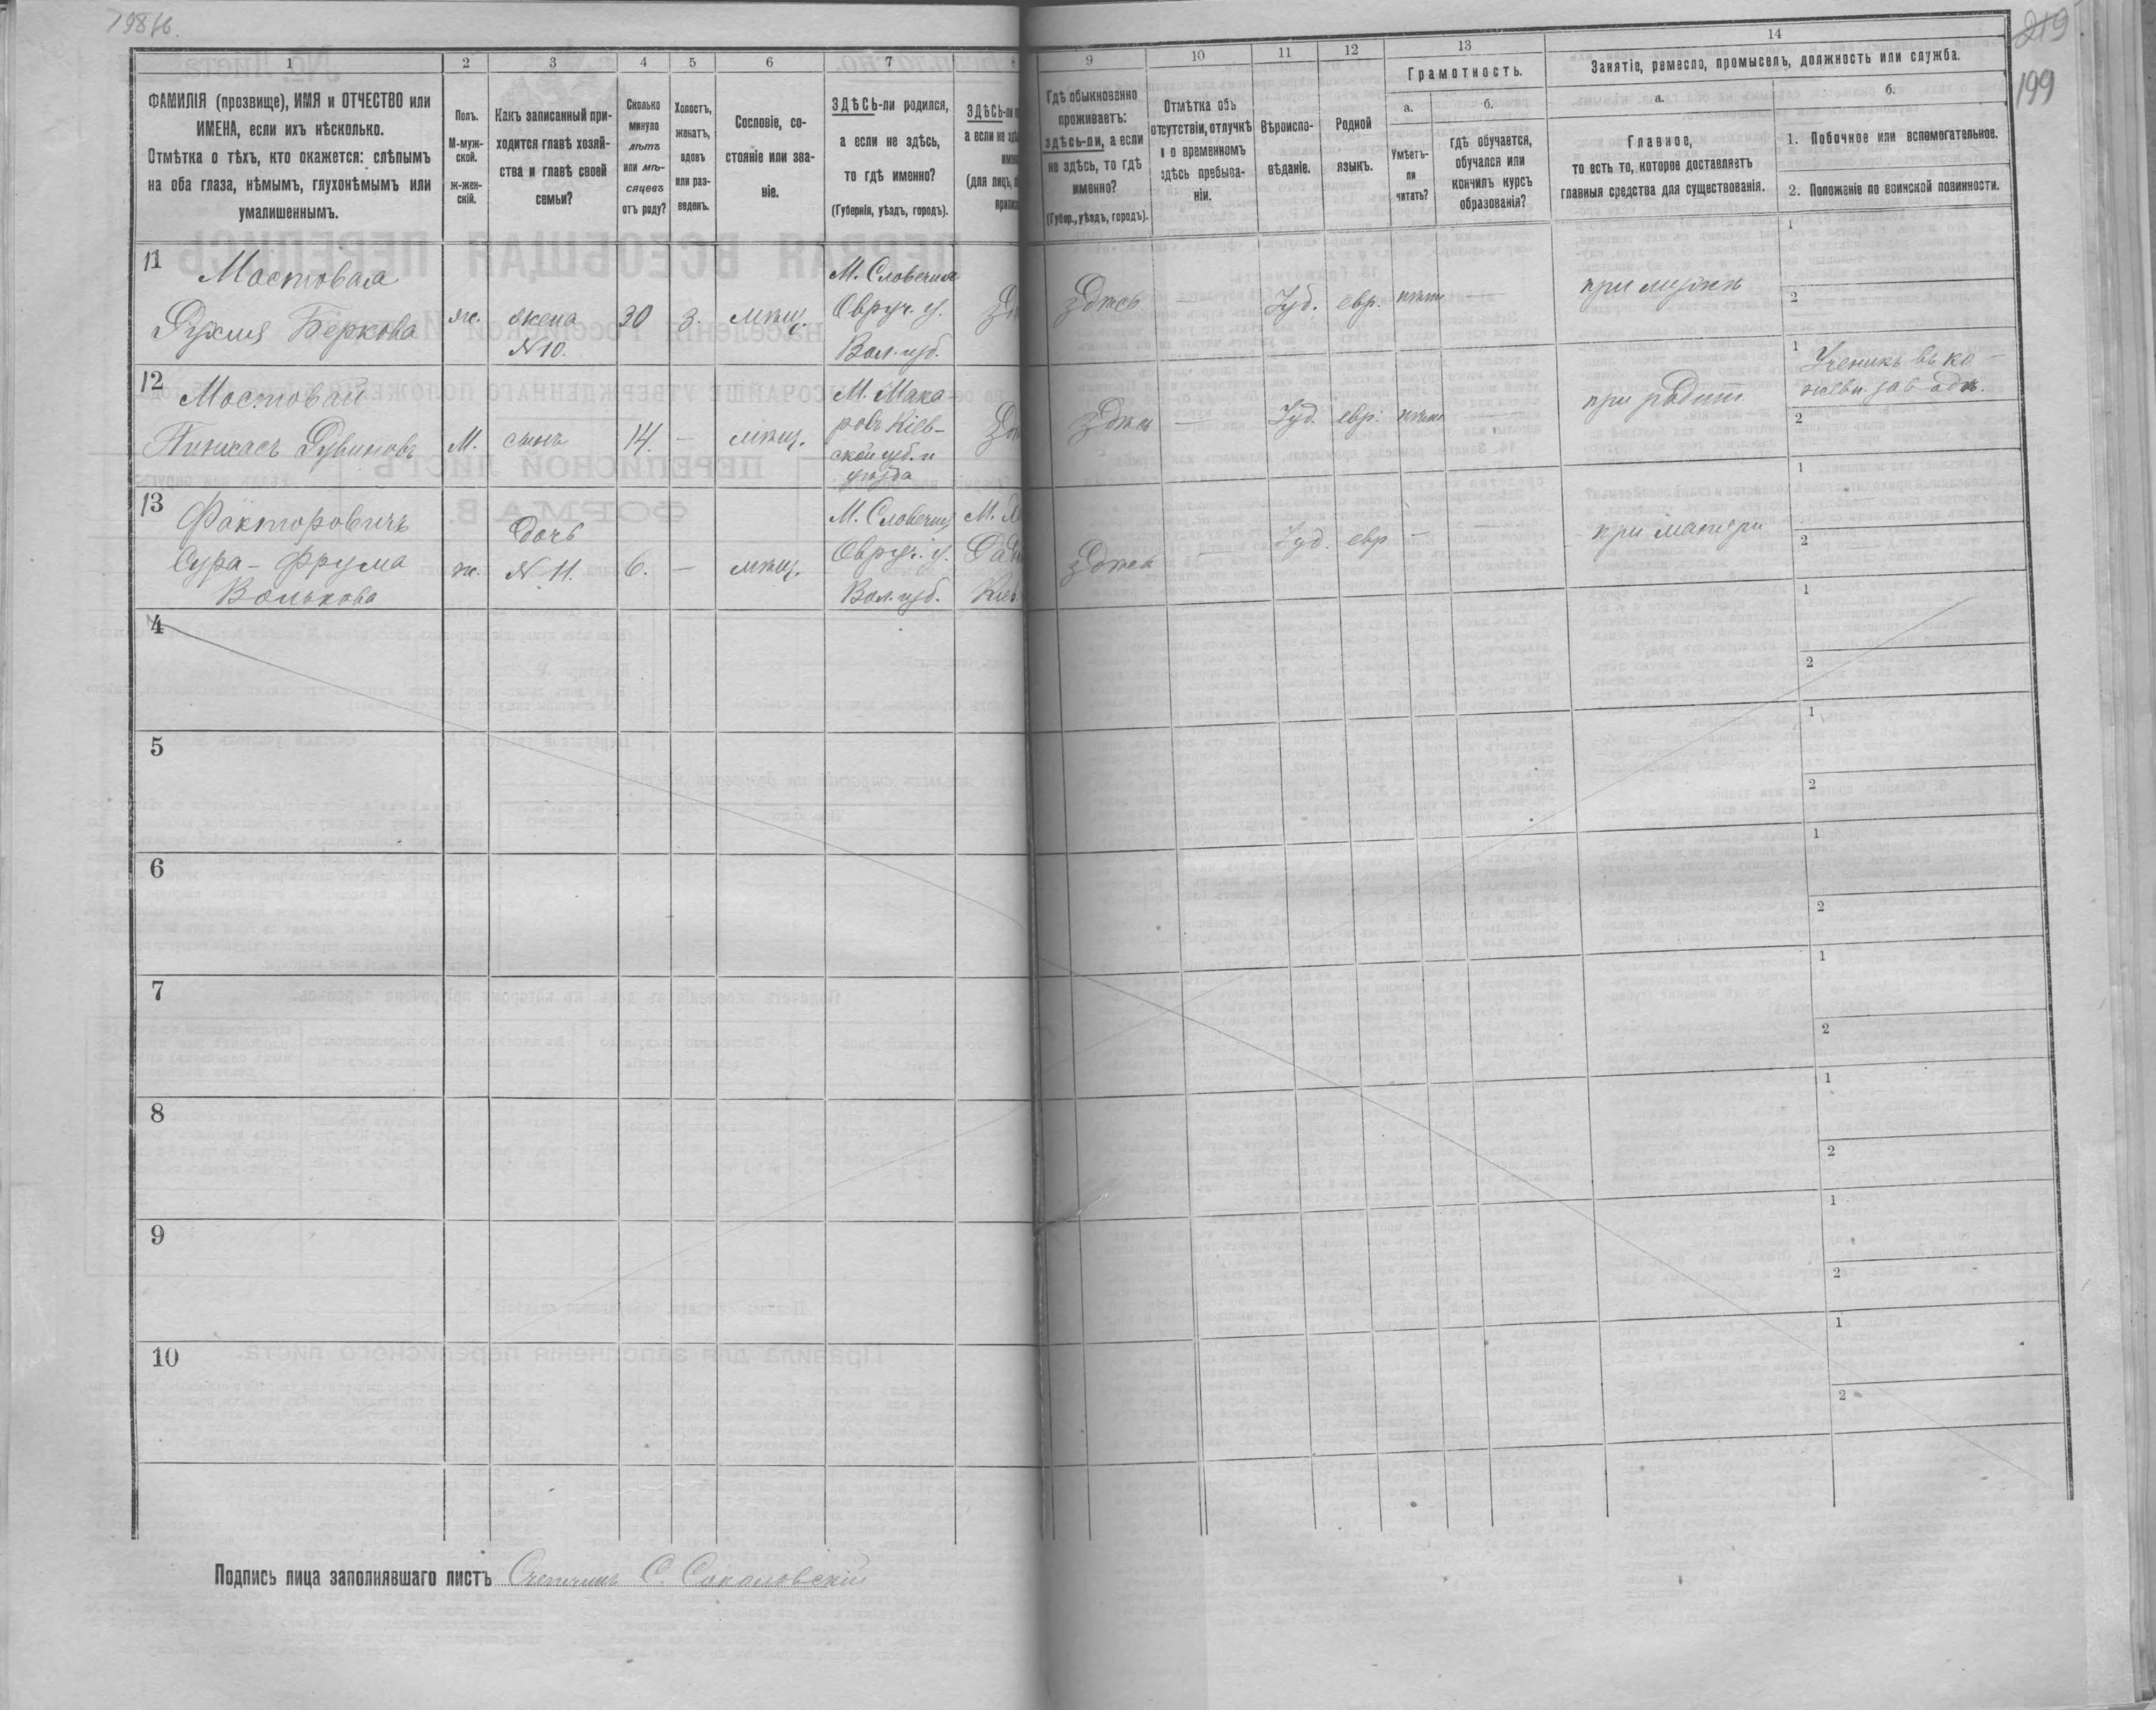 198 об.
219
199
1
2
3
4
5
6
7
8
ФАМИЛІЯ (прозвище), ИМЯ и ОТЧЕСТВО или
ИМЕНА, если ихъ нѣсколько.
Отмѣтка о тѣхъ, кто окажется: слѣпымъ
на оба глаза, нѣмымъ, глухонѣмымъ или
умалишеннымъ.
Полъ.
М-муж-
ской.
ж-жен-
скій.
Какъ записанный при-
ходится главѣ хозяй-
ства и главѣ своей
семьи?
Сколько
минуло
лѣтъ
или мѣ-
сяцевъ
отъ роду?
Холостъ,
женатъ,
вдовъ
или раз-
веденъ.
Сословіе, со-
стояніе или зва-
ніе.
ЗДѢСЬ-ли родился,
а если не здѣсь,
то гдѣ именно?
(Губернія, уѣздъ, городъ).
ЗДѢСЬ-ли
а если не
(для лицъ,
9
10
11
12
13
14
Гдѣ обыкновенно
проживаетъ:
здѣсь-ли, а если
не здѣсь, то гдѣ
именно?
(Губер., уѣздъ, городъ).
Отмѣтка объ
отсутствіи, отлучкѣ
и о временномъ
здѣсь пребыва-
ніи.
Вѣроиспо-
вѣданіе.
Родной
языкъ.
Грамотность.
а.
б.
Умѣетъ-
ли
читать?
гдѣ обучается,
обучался или
кончилъ курсъ
образованія?
Занятіе, ремесло, промыселъ, должность или служба.
а.
б.
Главное,
то есть то, которое доставляетъ
главныя средства для существованія.
1. Побочное или вспомогательное.
2. Положеніе по воинской повинности.
11
Мостовая
Рухля Беркова
ж.
жена
N 10.
30
з.
мѣщ.
М. Словечна
Овруч. у.
Вол. губ.
здѣсь
—
Іуд.
евр.
—
при мужѣ
1
2
12
Мостовой
Пинхасъ Рувиновъ
М.
сынъ
14.
—
мѣщ.
М. Мака
ровъ Кіев-
ской губ. и
уѣзда
здѣсь
—
Іуд.
евр.
—
1
Ученикъ въ ко-
2
13
Факторовичъ
Сура - Фрума
Волькова
ж.
дочь
N 11.
6.
—
мѣщ.
М. Словечна
Овруч. у.
Вол. губ.
здѣсь
—
Іуд.
евр
—
при матери
1
2
4
1
2
5
1
2
6
1
2
7
1
2
8
1
2
9
1
2
10
1
2
Подпись лица заполнявшаго листъ Счетчикъ С. Соколовскій